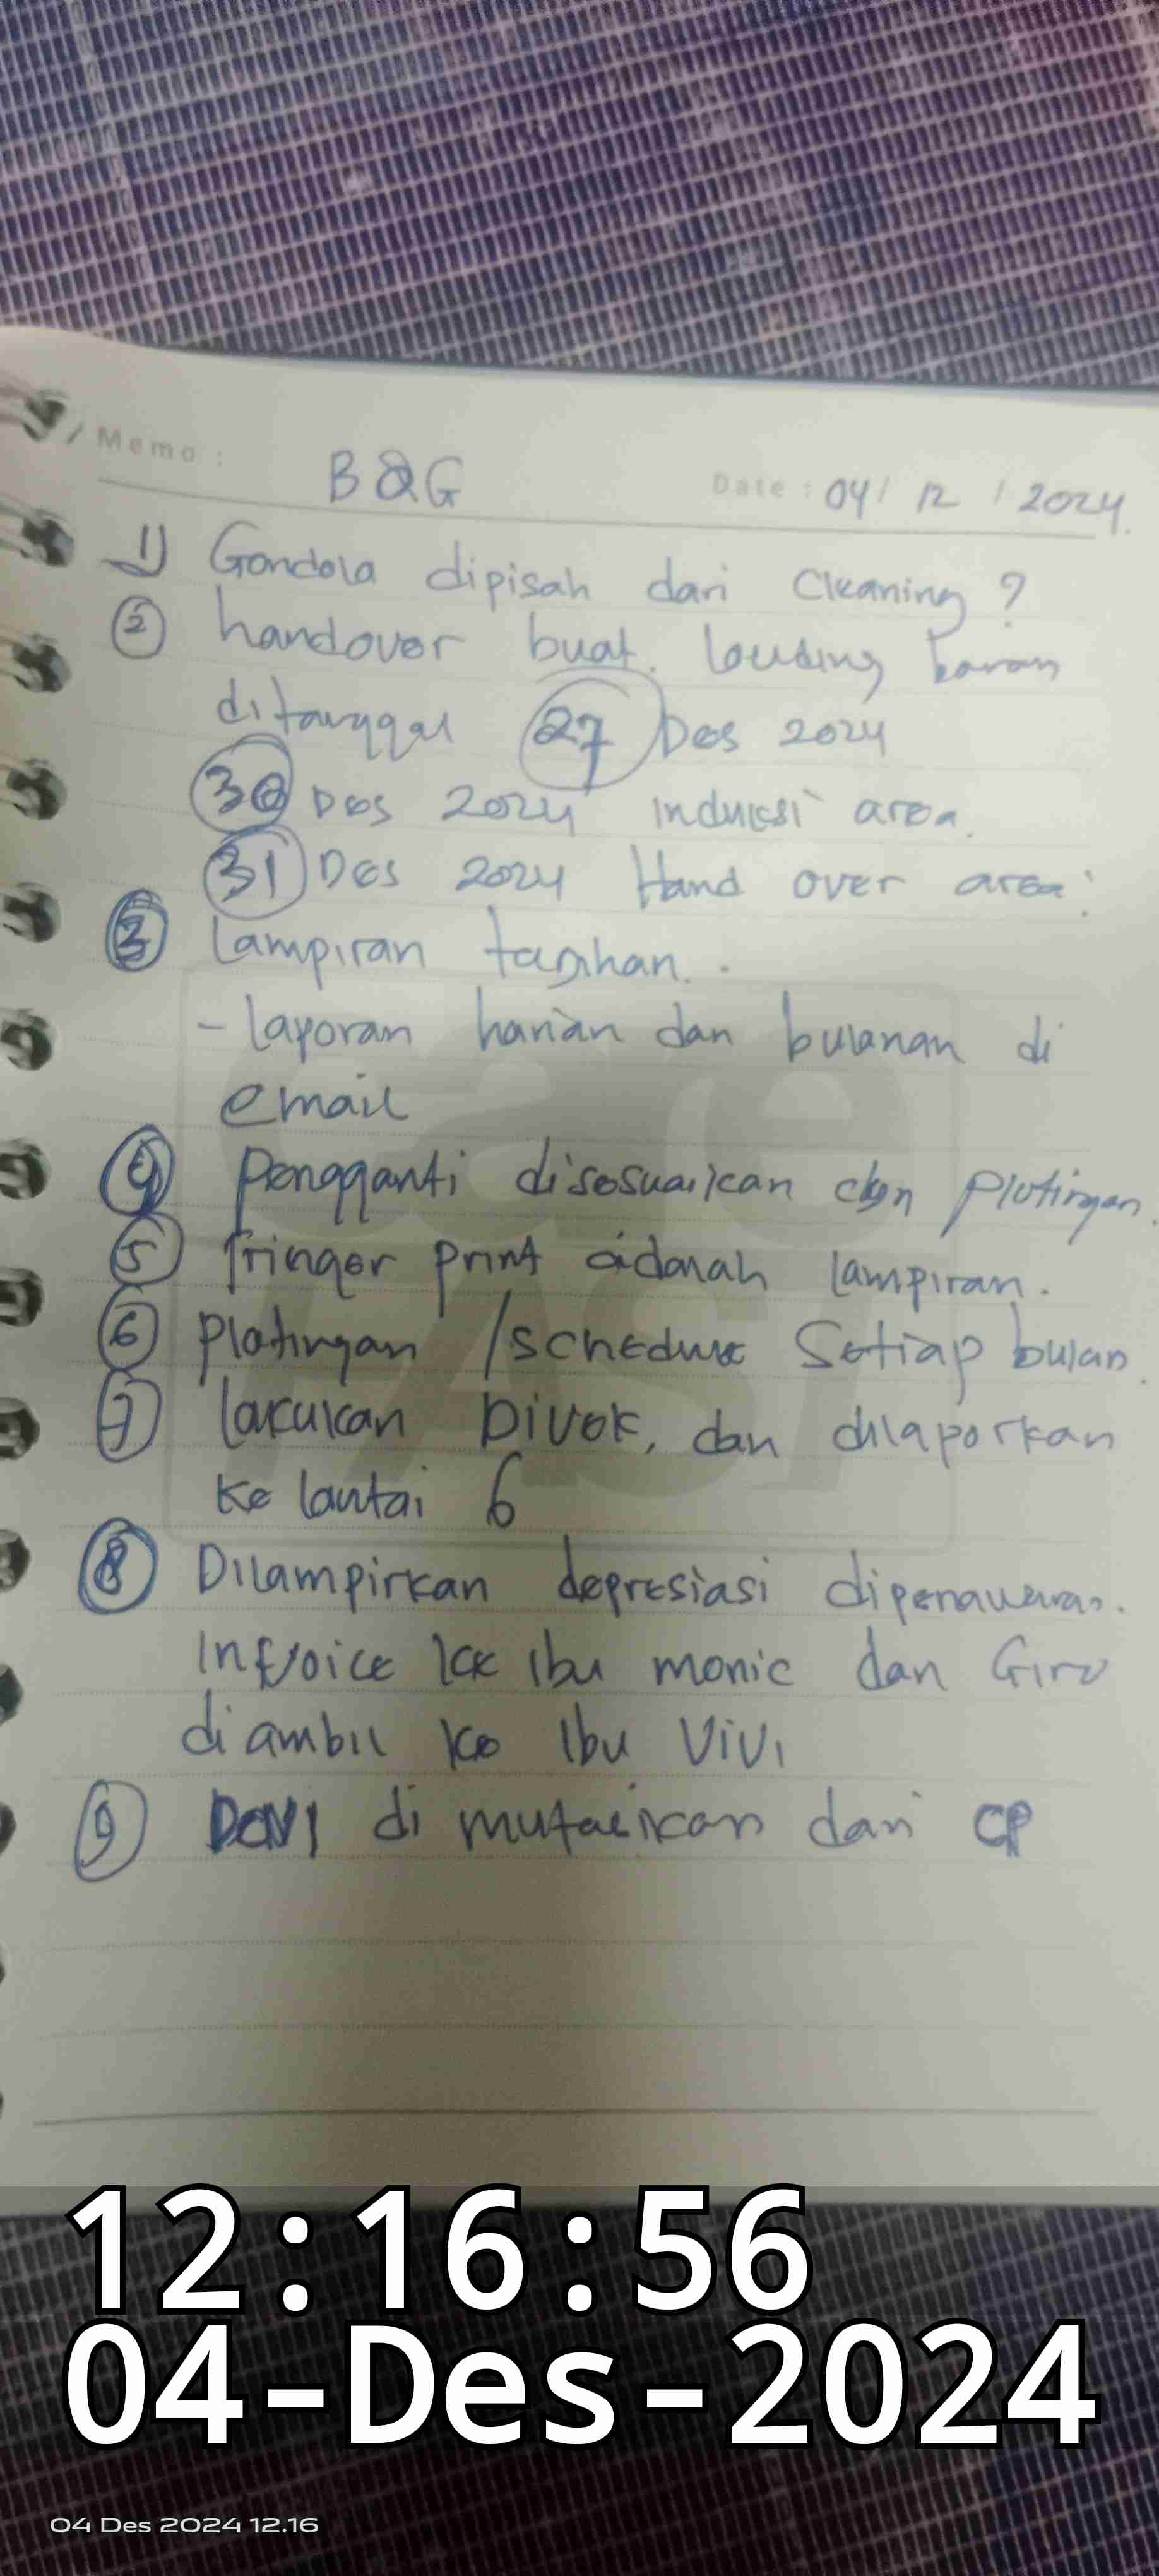 Memo : B&G Date : 04 / 12 / 2024.
1) Gondola dipisah dari Cleaning ?
2 handover buat. louding
ditanggal 27 Des 2024
30 Des 2024 induksi area.
31 Des 2024 Hand over area.
3 Lampiran tagihan.
- laporan harian dan bulanan di
email
4 Pengganti disesuaikan dgn plotingan.
5 fringer print adanah lampiran.
6 Plotingan /schedule Setiap bulan.
7 lakukan DIVOK, dan dilaporkan
Ke lantai 6
8 Dilampirkan depresiasi dipenawaran.
Invoice ke ibu monic dan Giro
diambil ke Ibu Vivi
9 Devi di mutasikan dari CP
care
FAST
12:16:56
04-Des-2024
04 Des 2024 12.16